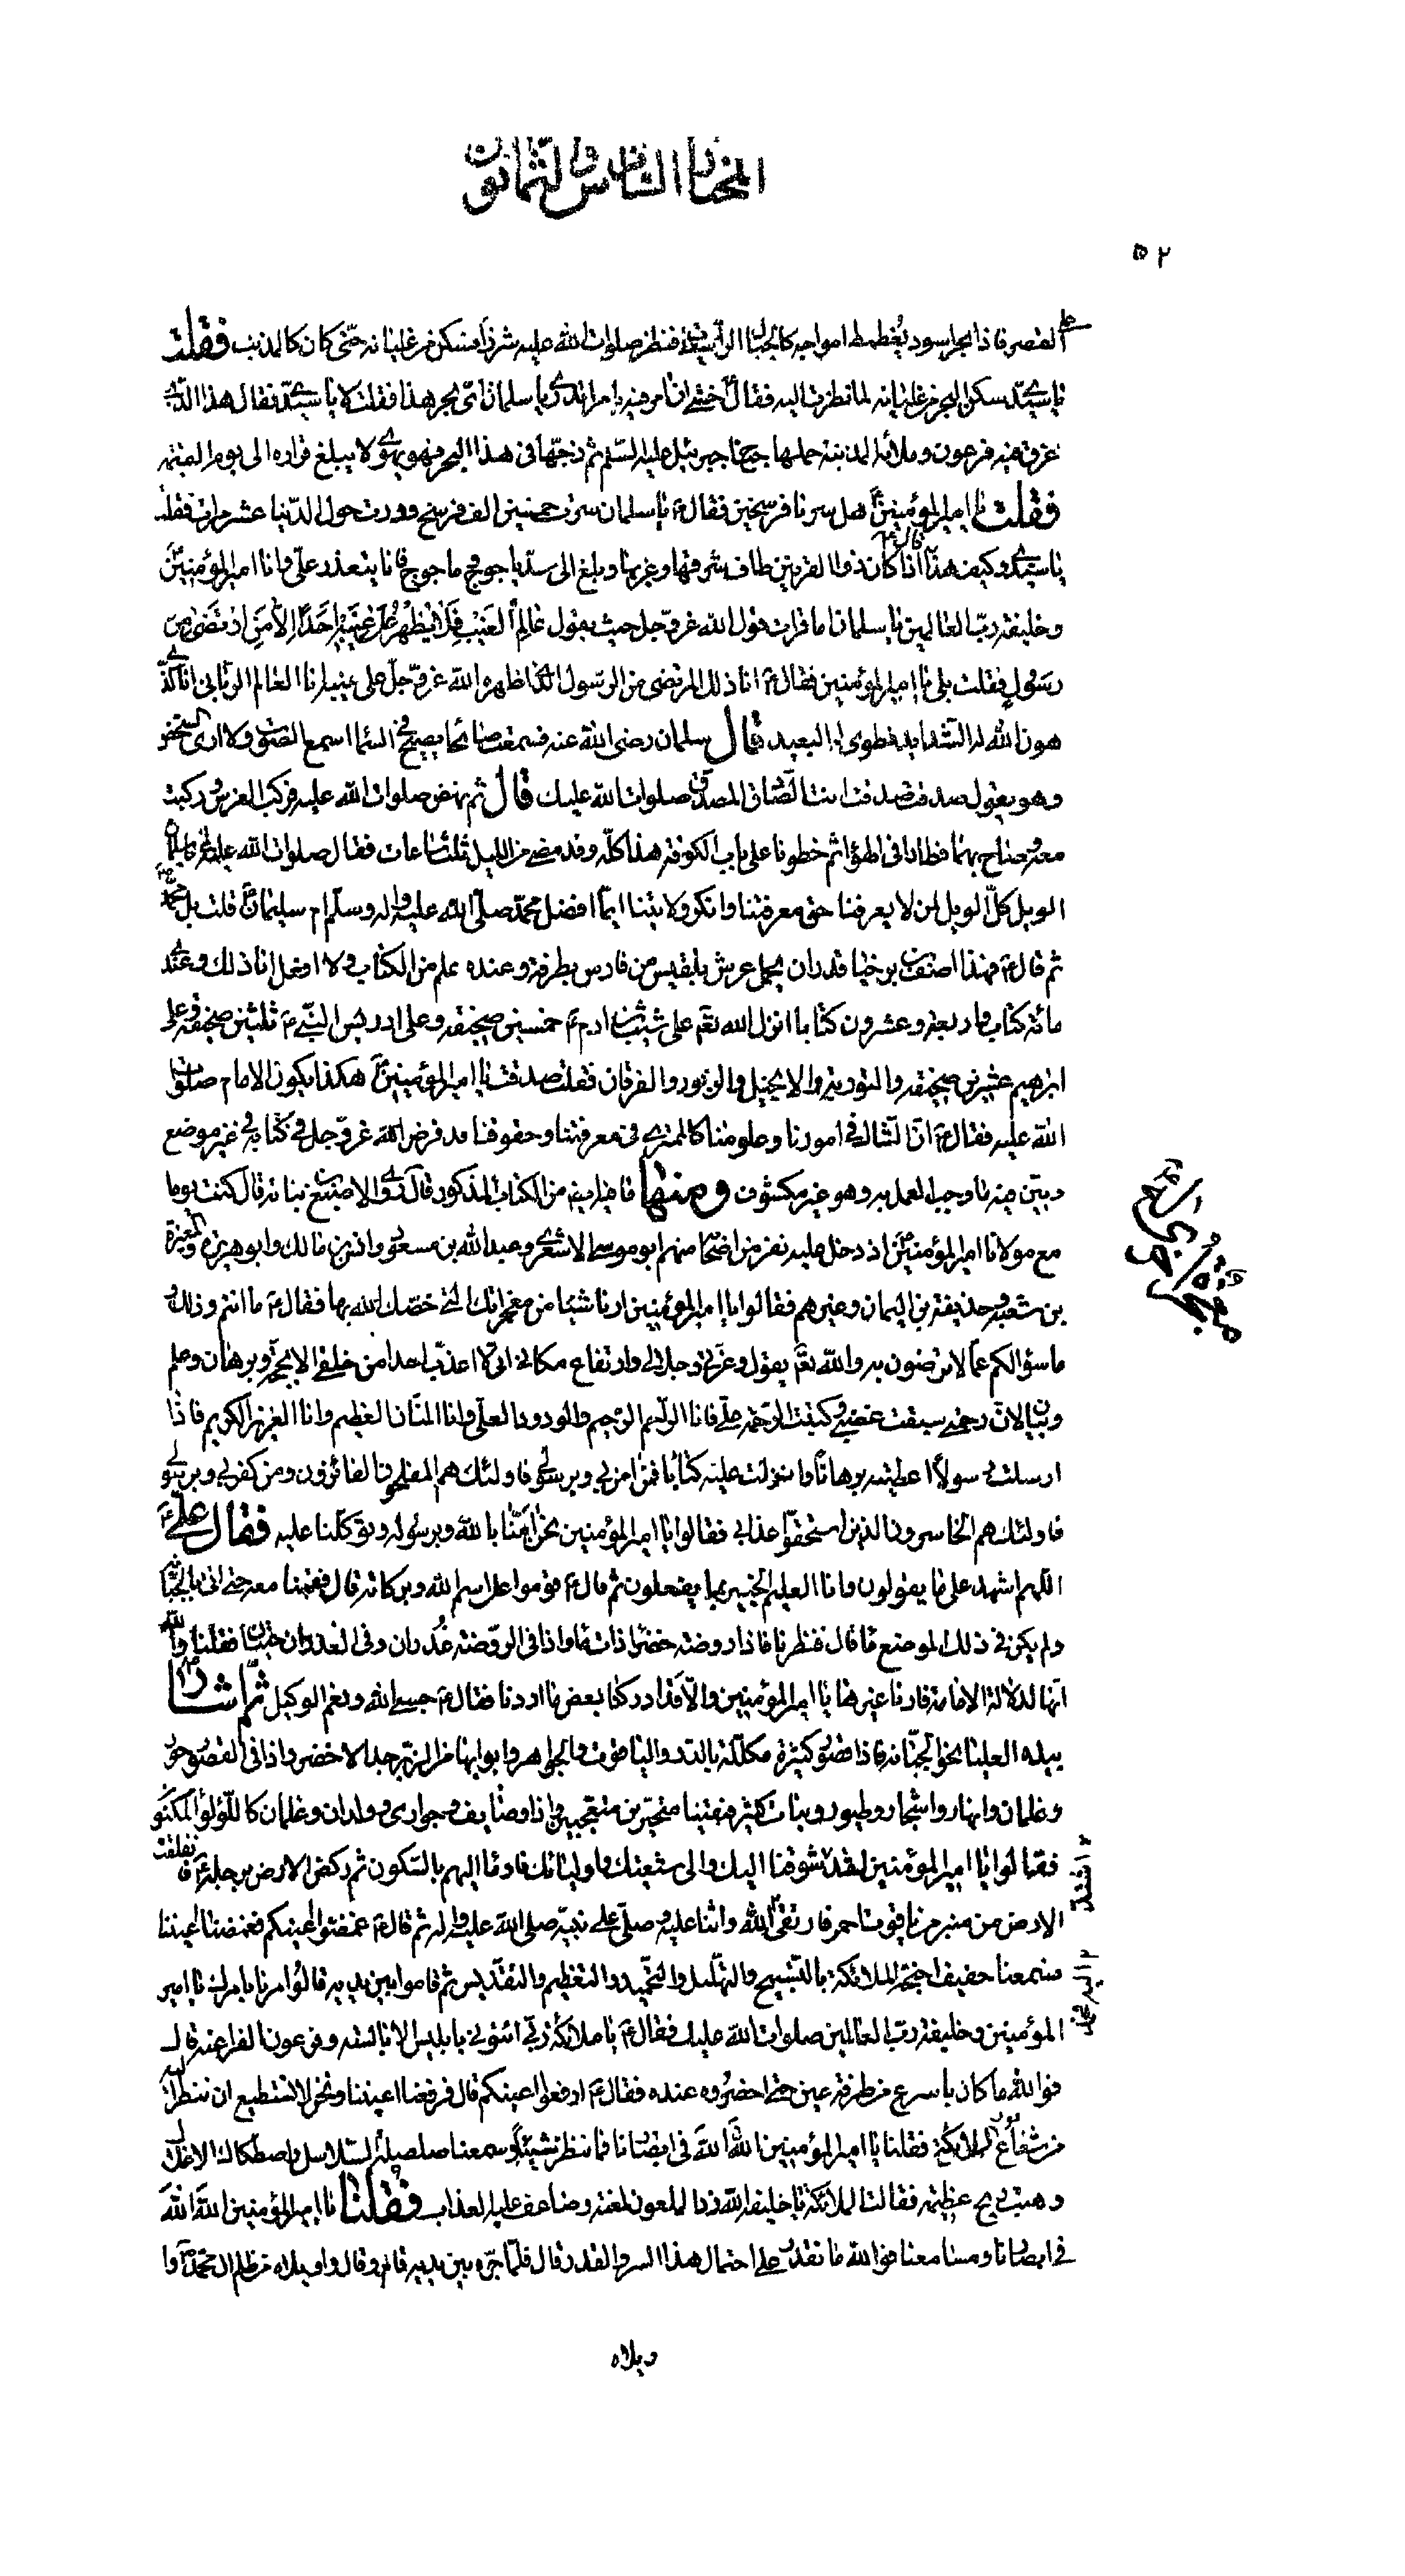 المختار السادس والثمانون
٥٢
على القصر فاذا بحر اسود يغطمط امواجه كالجبال الراسيات فنظر صلوات الله عليه شزرا فسكن من غليانه حتى كان كالمذنب فقلت
يا سيدى سكن البحر من غليانه لما نظرت اليه فقال خشى ان امر فيه بامر اتدرى يا سلمان اى بحر هذا فقلت لا يا سيدى فقال هذا الذى
غرق فيه فرعون وملائه المذنبة حملها جناح جبرئيل عليه السلم ثم زجها فى هذا البحر فهو يهوى لا يبلغ قراره الى يوم القيمه
فقلت يا امير المؤمنين هل سرنا فرسخين فقال يا سلمان سرت خمسين الف فرسخ ودرت حول الدنيا عشر مرات فقلت
يا سيدى وكيف هذا قال اذا كان ذو القرنين طاف شرقها وغربها وبلغ الى سد ياجوج وماجوج فانا يتعذر على وانا امير المؤمنين
وخليفة رب العالمين يا سلمان ما قرات قول الله عز وجل حيث يقول عالم الغيب فلا يظهر على غيبه احدا الا من ارتضى من
رسول فقلت بلى يا امير المؤمنين فقال انا ذلك المرتضى من الرسول الذى اظهره الله عز وجل على غيبه انا العالم الربانى انا الذى
هون الله له الشدايد فطوى له البعيد قال سلمان رضى الله عنه فسمعت صائحا يصيح فى السماء اسمع الصوت ولا ارى الشخص
وهو يقول صدقت صدقت انت الصادق المصدق صلوات الله عليك قال ثم نهض صلوات الله عليه فركب الفرس وركبت
معه وصاح بهما فطارا فى الهواء ثم خطونا على باب الكوفة هذا كله وقد مضى من الليل ثلث ساعات فقال صلوات الله عليه لى يا سلمان
الويل كل الويل لمن لا يعرفنا حق معرفتنا وانكر ولايتنا ايما افضل محمد صلى الله عليه واله وسلم ام سليمان قلت بل محمد
ثم قال فهذا اصف بن برخيا قدر ان يحمل عرش بلقيس من فارس بطرفة وعنده علم من الكتاب ولا افعل انا ذلك وعندى
مائة كتاب واربعة وعشرون كتابا انزل الله تعم على شيث بن ادم خمسين صحيفة وعلى ادريس النبى ثلثين صحيفة وعلى
ابرهيم عشرين صحيفة والتورية والانجيل والزبور والفرقان فقلت صدقت يا امير المؤمنين هكذا يكون الامام صلوات
الله عليه فقال ان الشاك فى امورنا وعلومنا كالممترى فى معرفتنا وحقوقنا قد فرض الله عز وجل فى كتابه فى غير موضع
وبين فيه ما وجب العمل به وهو غير مكشوف ومنها ما فيه ايضا من الكتاب المذكور قال روى الاصبغ بن نباته قال كنت يوما
مع مولانا امير المؤمنين اذ دخل عليه نفر من اصحابه منهم ابو موسى الاشعرى وعبد الله بن مسعود وانس بن مالك وابو هريرة والمغيرة
بن شعبة وحذيفة بن اليمان وغيرهم فقالوا يا امير المؤمنين ارنا شيئا من معجزاتك التى خصك الله بها فقال ما انتم وذلك و
ما سؤالكم عما لا ترضون به والله تعم يقول وعزتى وجلالى وارتفاع مكانى انى لا اعذب احدا من خلقى الا بحجة وبرهان وعلم
وبيان لان رحمتى سبقت غضبى وكتبت الرحمة على فانا الراحم الرحيم والودود العلى وانا المنان العظيم وانا العزيز الكريم فاذا
ارسلت رسولا اعطيته برهانا وانزلت عليه كتابا فمن امن بى وبرسولى فاولئك هم المفلحون الفائزون ومن كفر بى وبرسولى
فاولئك هم الخاسرون الذين استحقوا عذابى فقالوا يا امير المؤمنين نحن امنا بالله وبرسوله وتوكلنا عليه فقال على
اللهم اشهد على ما يقولون وانا العليم الخبير بما يفعلون ثم قال قوموا على اسم الله وبركاته قال فقمنا معه حتى اتى بالجبانة
ولم يكن فى ذلك الموضع ماء قال فنظرنا فاذا روضة خضراء ذات ماء واذا فى الروضة غدران وفى الغدران حيتان فقلنا والله
انها لدلالة الامامة فارنا غيرها يا امير المؤمنين والا قد ادركنا بعض ما اردنا فقال حسبى الله ونعم الوكيل ثم اشار
بيده العليا نحو الجبانة فاذا قصور كثيرة مكللة بالدر والياقوت والجواهر وابوابها من الزبرجد الاخضر واذا فى القصور حور
وغلمان وانهار واشجار وطيور ونبات كثيرة فبقينا متحيرين متعجبين واذا وصائف وجوارى وولدان وغلمان كاللؤلؤ المكنون
فقالوا يا امير المؤمنين لقد اشتد شوقنا اليك والى شيعتك واوليائك فاومأ اليهم بالسكون ثم ركض الارض برجله فانفلقت
الارض من منبر من ياقوت احمر فارتقى اليه فحمد الله واثنا عليه وصلى على نبيه صلى الله عليه واله ثم قال غمضوا اعينكم فغمضنا اعيننا
فسمعنا حفيف اجنحة الملائكة بالتسبيح والتهليل والتحميد والتعظيم والتقديس ثم قاموا بين يديه قالوا مرنا بامرك يا امير
المؤمنين وخليفة رب العالمين صلوات الله عليك فقال يا ملائكة ربى ائتونى بابليس الابالسة وفرعون الفراعنة قال
فوالله ما كان باسرع من طرفة عين حتى احضروه عنده فقال ارفعوا اعينكم قال فرفعنا اعيننا ونحن لا نستطيع ان ننظر اليه
من شعاع نور الملائكة فقلنا يا امير المؤمنين الله الله فى ابصارنا فما ننظر شيئا وسمعنا صلصلة السلاسل واصطكاك الاغلال
وهبت ريح عظيمة فقالت الملائكة يا خليفة الله زد الملعون لعنة وضاعف عليه العذاب فقلنا يا امير المؤمنين الله الله
فى ابصارنا ومسامعنا فوالله ما نقدر على احتمال هذا السر والقدر قال فلما جره بين يديه قام وقال واويلاه من ظلم ال محمد وا
ويلاه